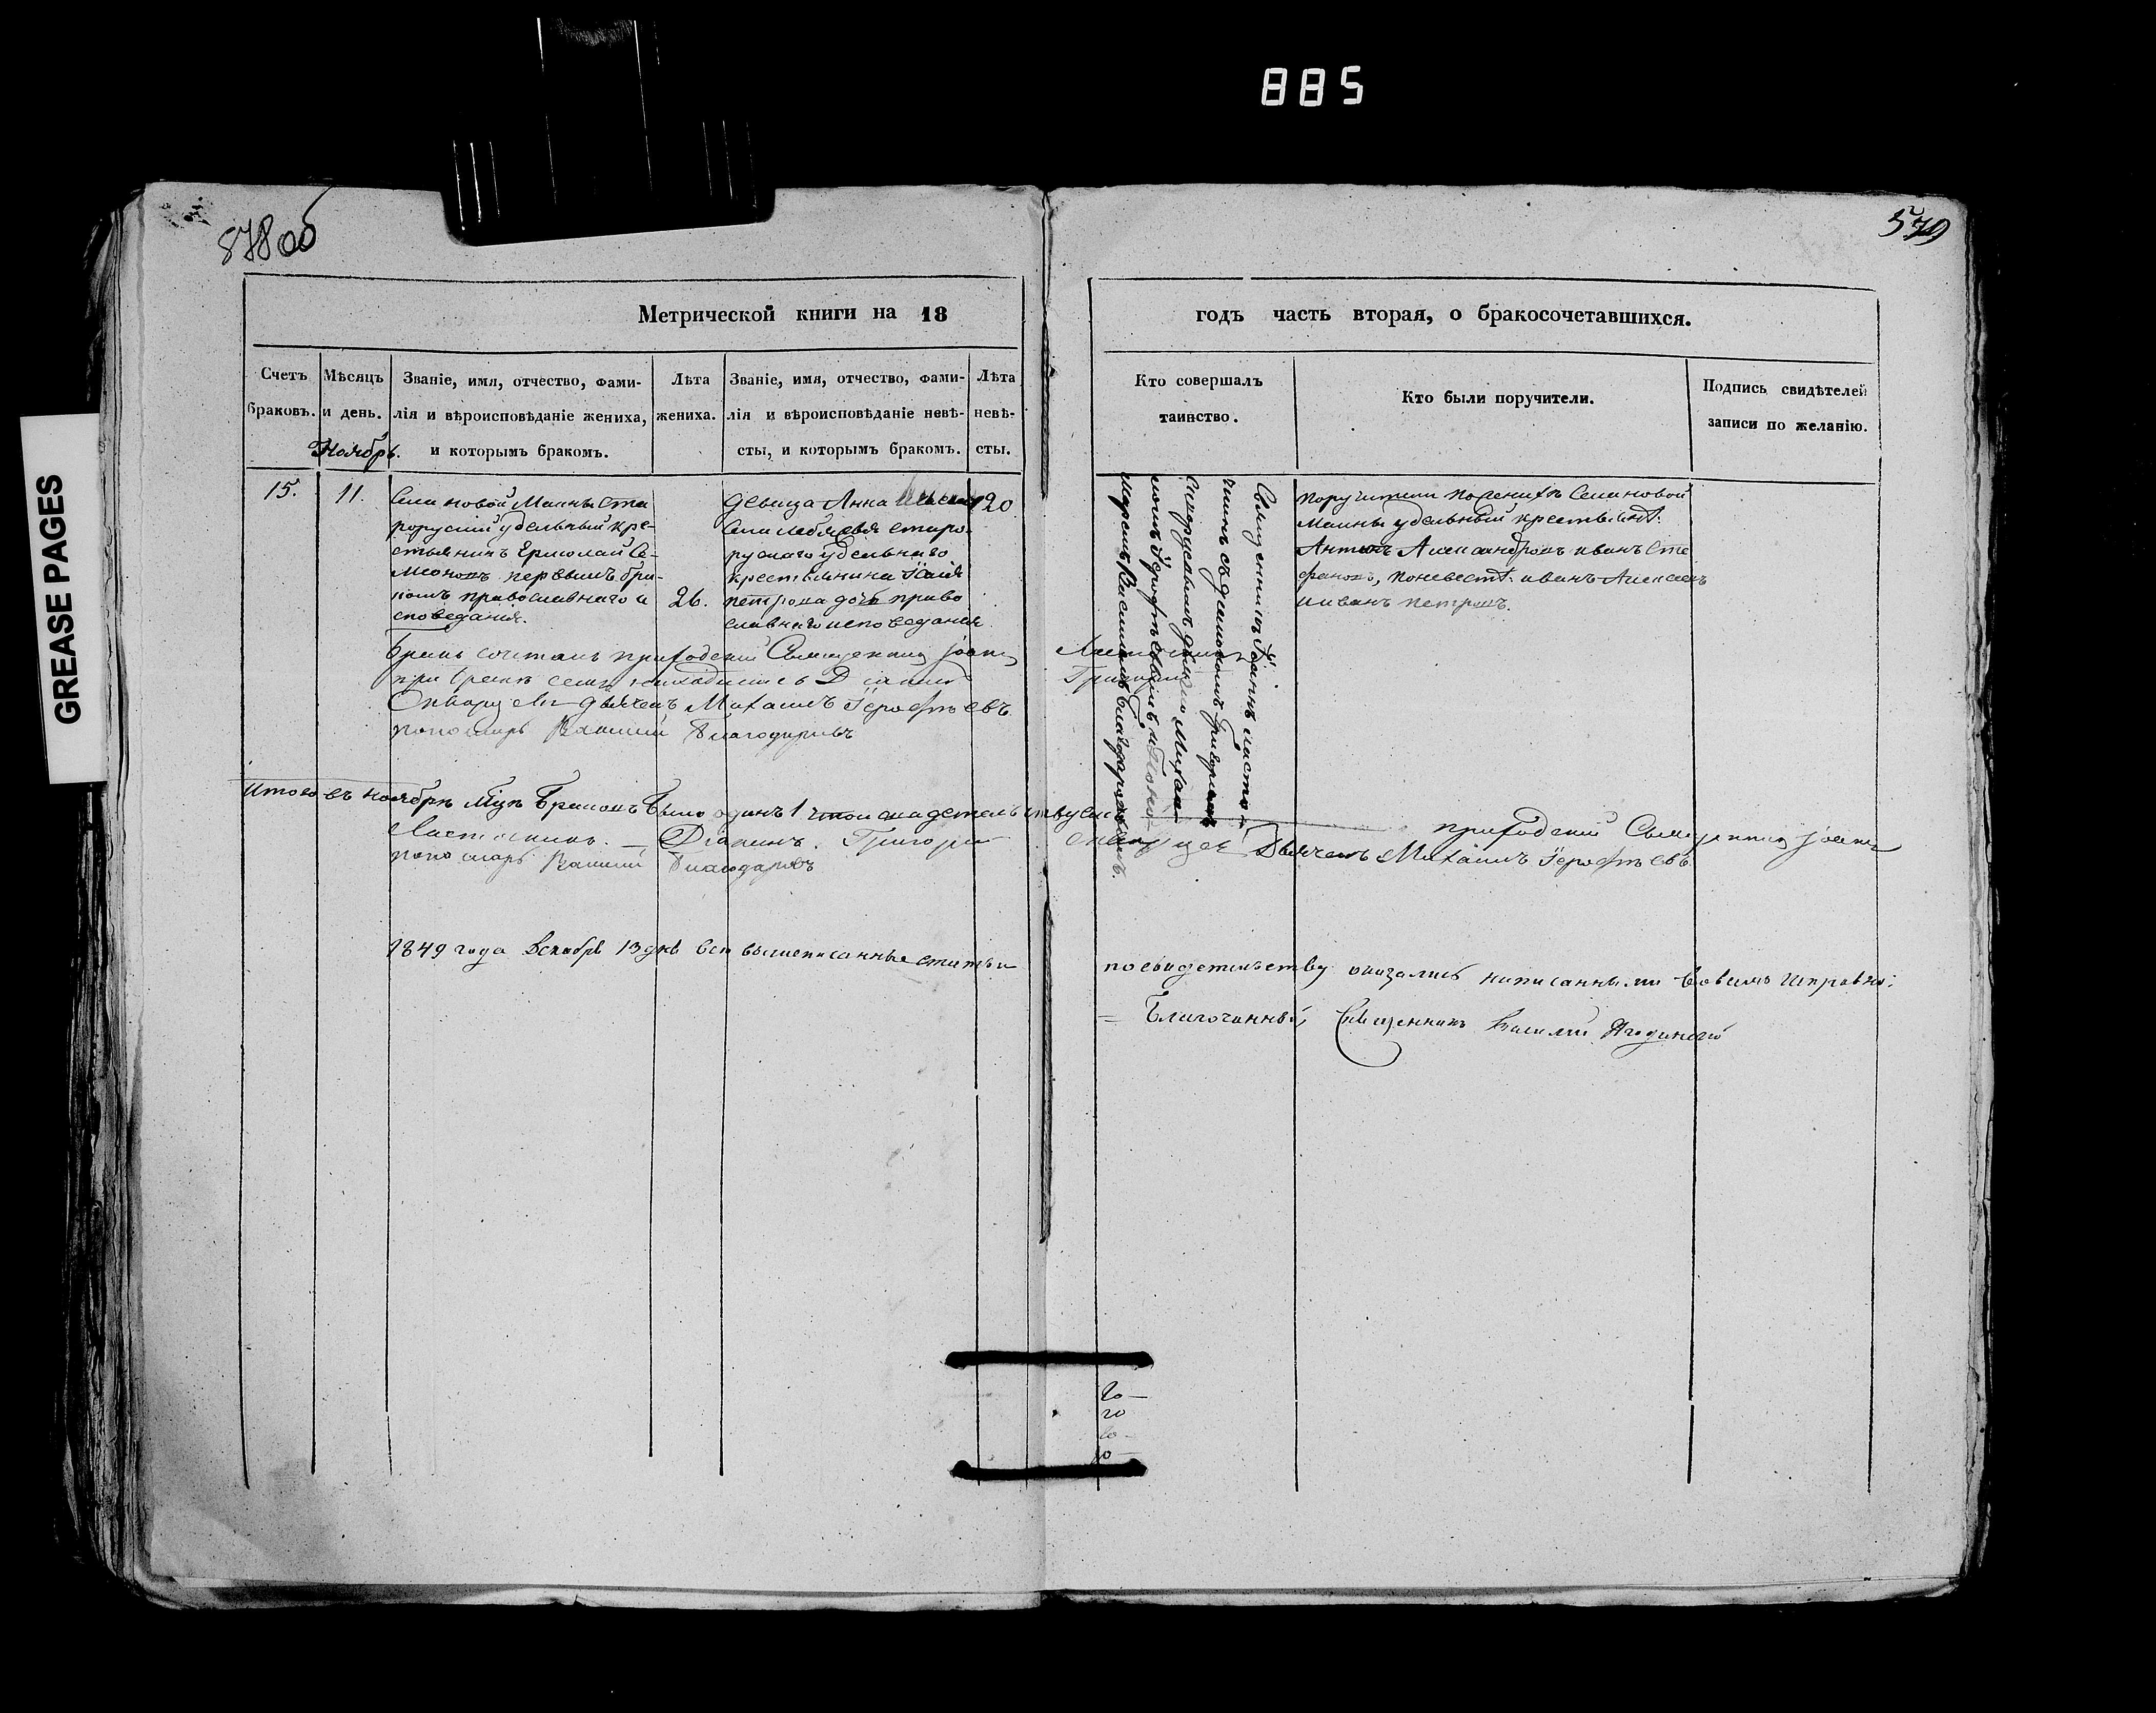 885
GREASE PAGES
878 об
579
Метрической книги на 18
годъ часть вторая, о бракосочетавшихся.
Счетъ браковъ.
Мѣсяцъ и день.
Ноябрь.
Званіе, имя, отчество, фами-
лія и вѣроисповѣданіе жениха,
и которымъ бракомъ.
Лѣта
жениха.
Званіе, имя, отчество, фами-
лія и вѣроисповѣданіе невѣ-
сты, и которымъ бракомъ.
Лѣта
невѣ-
сты.
Кто совершалъ
таинство.
Кто были поручители.
Подпись свидѣтелей
записи по желанію.
15.
11.
Села новой Маины ста
роруский удельный кре-
стьянинъ Ермолай Се-
меновъ первымъ бра-
комъ православнаго и
споведания.
26.
девица Анна
Села старо-
рускаго удельнаго
крестьянина
петрова дочь право
славнаго исповедания
20
Священникъ Іоаннъ Ласточ-
кинъ съ диакономъ Григориемъ
Скворцевымъ дьячкомъ Михаи-
ломъ Іерофѣевымъ и Поно-
маремъ Василиемъ Благодаровымъ.
Поручители по женихѣ Села новой
Маины удельный крестьянѣ:
Антонъ Александровъ иванъ Сте
фановъ, по невестѣ: иванъ Алексеевъ
и иванъ петровъ.
Бракъ сочеталъ приходский Священник Іоанн Ласточкин
при бракѣ семъ находились Диакон Григорий
Скворцев дьячекъ Михаилъ Іерофѣевъ
пономарь Василий Благодаровъ
Итого въ ноябрѣ мцѣ браковъ было одинъ 1 въ том свидетельствуем приходский Священник Іоанн
Ласточкин. Діаконъ. Григорий Скворцев Дьячекъ Михаилъ Іерофѣевъ
пономарь Василий Благодаровъ
1849 года Декабря 13 дня все вышеписанные статьи
по свидетельству оказались написанными во всемъ исправно:
Благочинный, Священникъ Василий Ягодинский
20 —
20
20 -
20 —